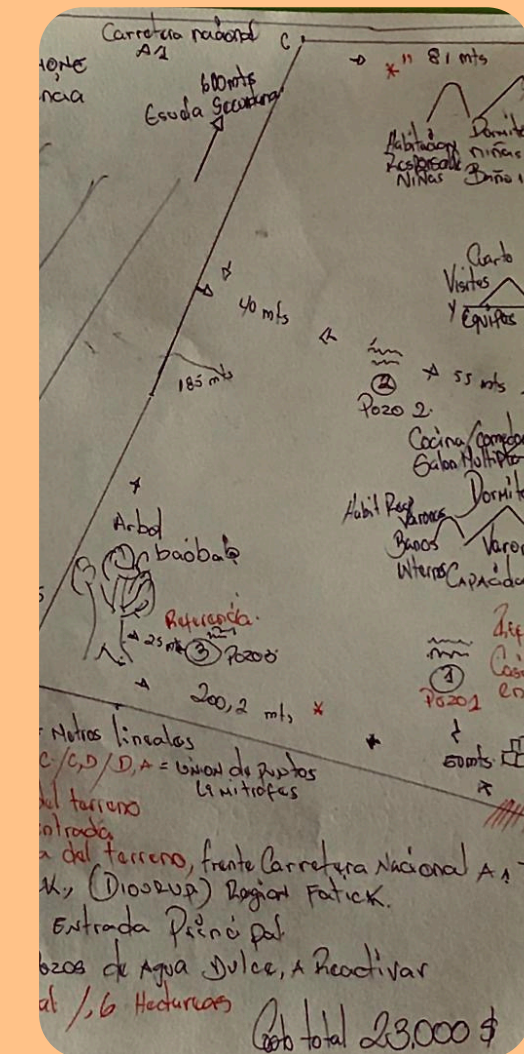 Carretera nacional
A1
C
HONE
ncia
600 mts
Escuela Secundaria
81 mts
Habitación
Responsable
NIÑAS
Dormito
niñas
Baño
Cuarto
Visitas
Y Equipos
40 mts
185 mts
2
Pozo 2.
55 mts
Cocina/Comedor
Salon Multip
Habit Resp
Varones
Baños
Internos
Dormito
Varon
CAPACida
Arbol
baobab
Referencia.
25 mts
3 Pozo 3
200,2 mts *
1
Pozo 1
Cas
en
50 mts.
= Metros lineales
C/C,D/D,A = UNION de Puntos
Limitrofes
del terreno
entrada
a del terreno, frente Carretera Nacional A1
K., (DIOURUP) Region Fatick.
Entrada Principal
ozos de Agua Dulce, A Reactivar
al 1,6 Hectareas
Costo total 23.000 $